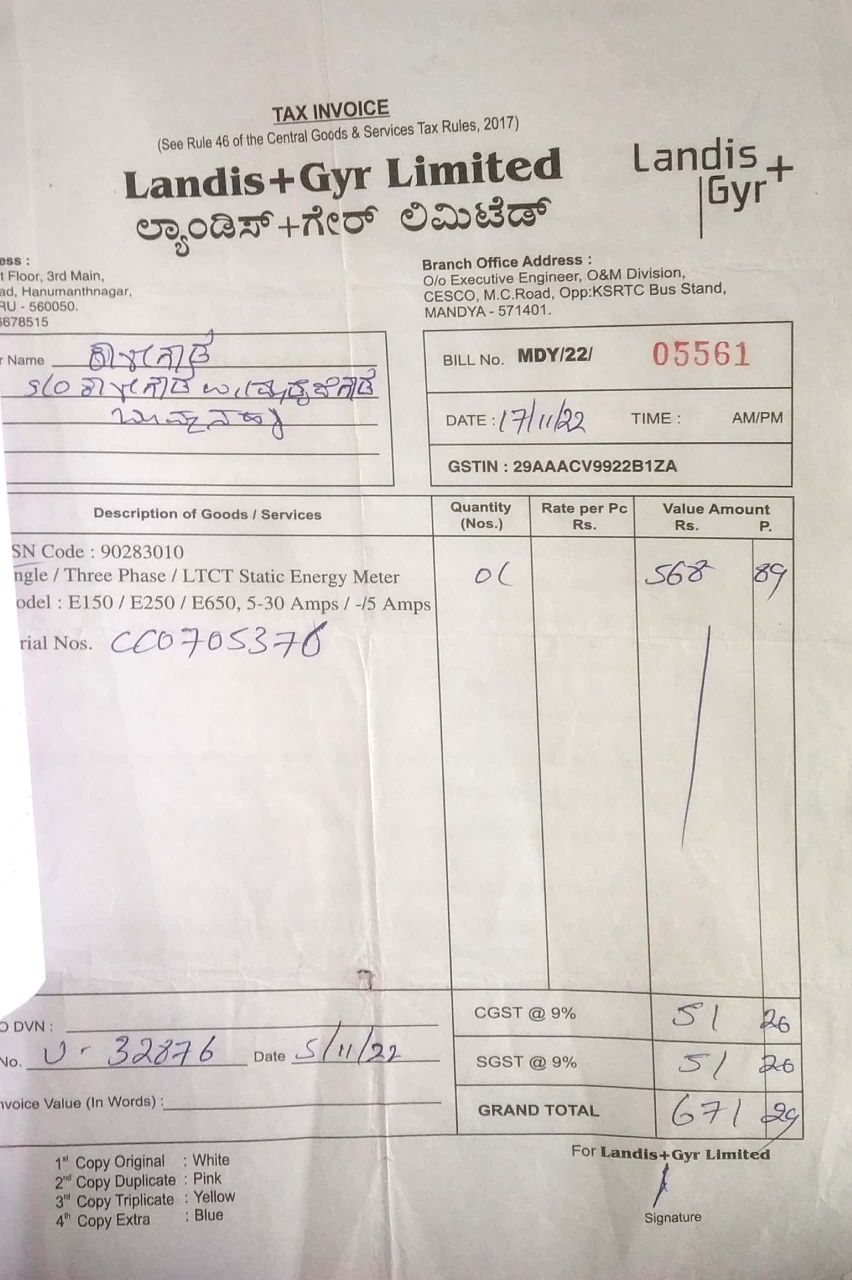 TAX INVOICE
(See Rule 46 of the Central Goods & Services Tax Rules, 2017)
Landis+Gyr Limited
ಲ್ಯಾಂಡಿಸ್+ಗೇರ್ ಲಿಮಿಟೆಡ್
Landis+
Gyr
ess :
t Floor, 3rd Main,
ad, Hanumanthnagar,
RU - 560050.
5678515
Branch Office Address :
O/o Executive Engineer, O&M Division,
CESCO, M.C.Road, Opp:KSRTC Bus Stand,
MANDYA - 571401.
r Name
S/O
BILL No. MDY/22/ 05561
DATE : 17/11/22 TIME : AM/PM
GSTIN : 29AAACV9922B1ZA
Description of Goods / Services Quantity (Nos.) Rate per Pc Rs. Value Amount Rs. P.
SN Code : 90283010
ngle / Three Phase / LTCT Static Energy Meter 01 568 89
odel : E150 / E250 / E650, 5-30 Amps / -/5 Amps
rial Nos. CC0705376
O DVN :
CGST @ 9% 51 26
No. U - 32876 Date 5/11/22
SGST @ 9% 51 26
nvoice Value (In Words) :
GRAND TOTAL 671 29
1st Copy Original : White
2nd Copy Duplicate : Pink
3rd Copy Triplicate : Yellow
4th Copy Extra : Blue
For Landis+Gyr Limited
Signature